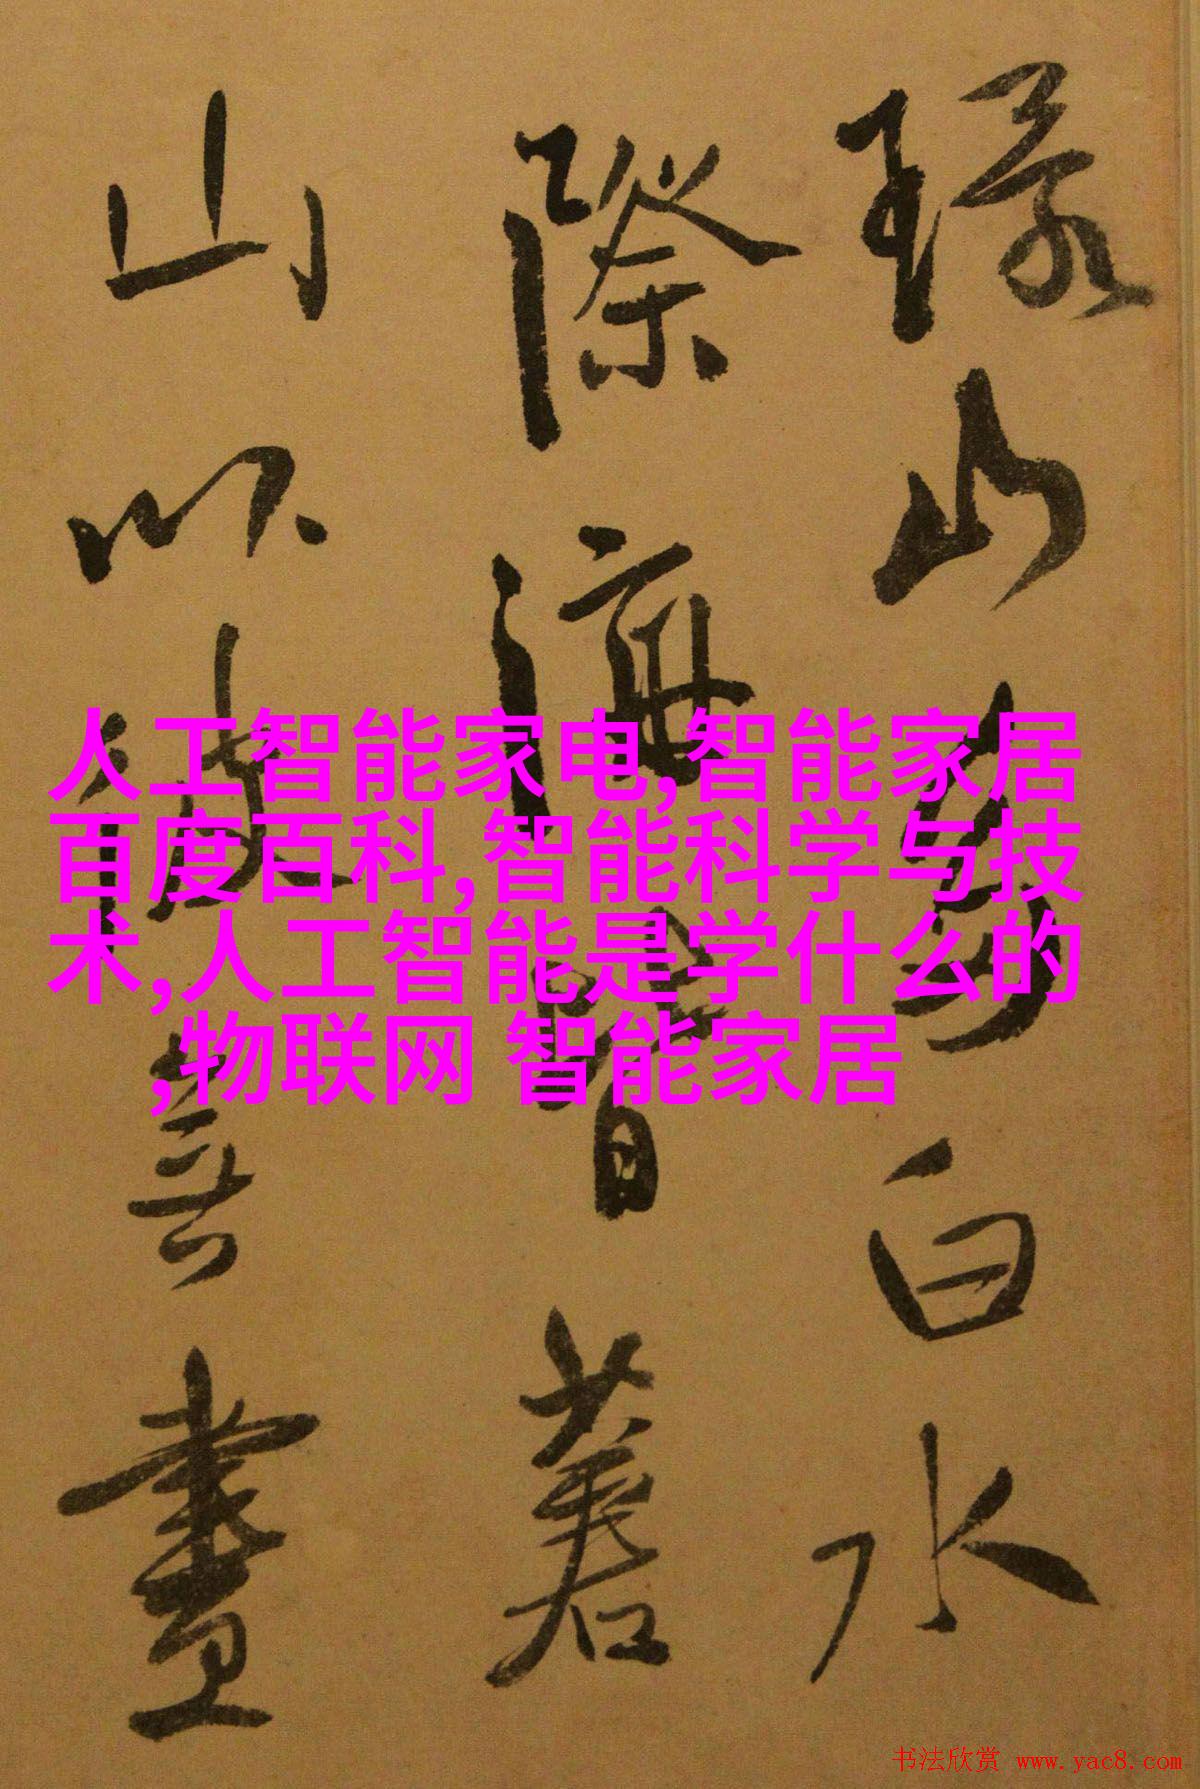 山白水
際海著
山以畫
人工智能家电,智能家居
百度百科,智能科学与技
术,人工智能是学什么的
,物联网 智能家居
书法欣赏 www.yac8.com